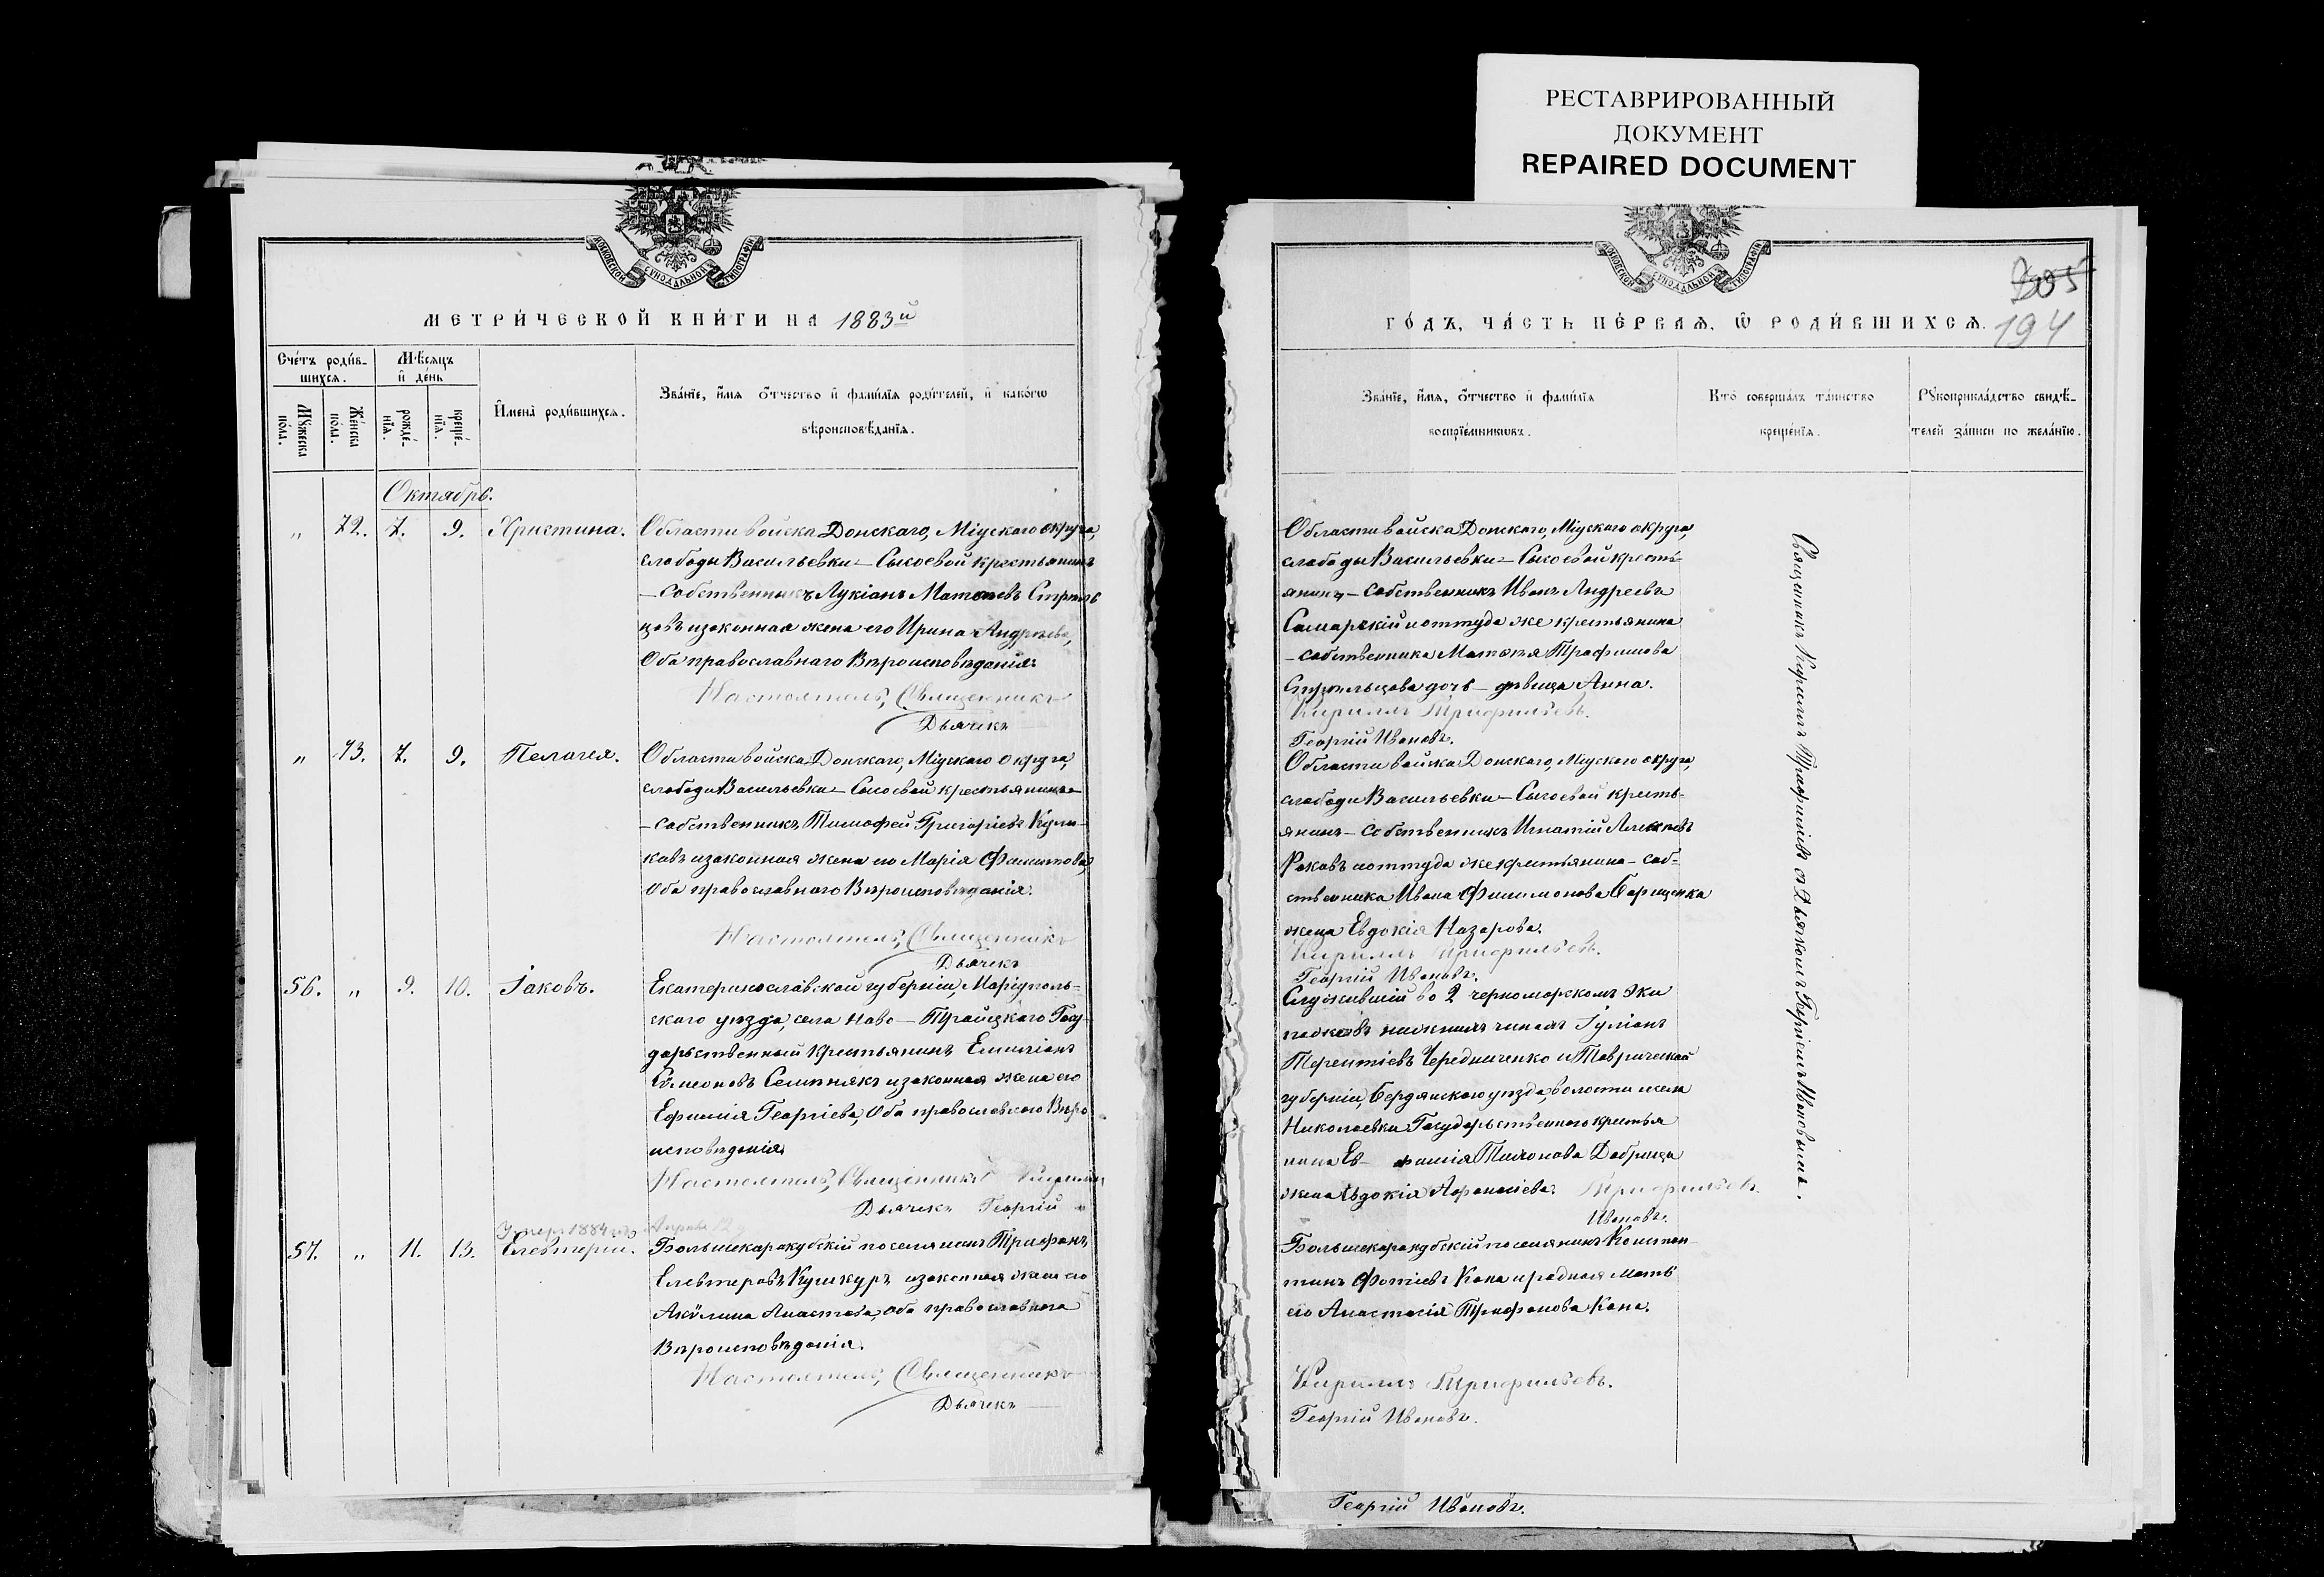 РЕСТАВРИРОВАННЫЙ
ДОКУМЕНТ
REPAIRED DOCUMENT
МОСКОВСКОЙ СѴНОДАЛЬНОЙ ТИПОГРАФІИ
МЕТРИ́ЧЕСКОЙ КНИ́ГИ НА 1883й
Сче́тъ роди́в-
шихся.
Мѣ́сяцъ
и̂ де́нь
Мꙋ́жеска
по́ла.
Же́нска
по́ла.
рожде́-
нїѧ.
креще́-
нїѧ.
И̂мена̀ роди́вшихся.
Зва́нїе, и̂́мя ѻ҆́тчество и̂ фами́лїя роди́телей, и̂ како́гѡ
вѣроисповѣ́данїя.
Октябрь.
„ 72. 7. 9. Христина.
Области войска Донскаго, Міускаго округа,
слободы Васильевки - Сысоевой крестьянинъ
- собственникъ Лукіанъ Матѳеевъ Стрѣль
цовъ и законная жена его Ирина Андреева,
Оба православнаго Вѣроисповѣданія.
Настоятель, Священникъ
Дьячекъ
„ 73. 7. 9. Пелагея.
Области войска Донскаго, Міускаго округа,
слободы Васильевки - Сысоевой крестьянинъ
- собственникъ Тимофей Григоріевъ Кули-
ковъ и законная жена его Марія
Оба православнаго Вѣроисповѣданія.
Настоятель, Священникъ
Дьячекъ
56. „ 9. 10. Іаковъ.
Екатеринославской губерніи, Маріуполь-
скаго уѣзда, села Ново - Троицкаго Госу-
дарственный крестьянинъ Емиліанъ
Сѵмеоновъ и законная жена его
Ефимія Георгіева, Оба православнаго Вѣро-
исповѣданія
Настоятель, Священникъ Кириллъ
Дьячекъ Георгій
Умеръ 1884 года Апрѣля 12 д
57. „ 11. 13. Елевтерій.
Большекаракубскій поселянинъ Трифонъ
Елевтеровъ Кушкуръ и законная жена его
Акѵлина Анастова, Оба православнаго
Вѣроисповѣданія.
Настоятель, Священникъ
Дьячекъ
МОСКОВСКОЙ СѴНОДАЛЬНОЙ ТИПОГРАФІИ
305
ГО́ДЪ, ЧА́СТЬ ПЕ́РВАЯ, Ѽ РОДИ́ВШИХСЯ. 194
Зва́нїе, и̂́мя, ѻ҆́тчество и̂ фами́лїя
воспрїе́мникѡвъ.
Кто̀ соверша́лъ та́инство
креще́нїя.
Рꙋкоприкла́дство свидѣ́-
телей за́писи по жела́нїю.
Области войска Донскаго, Міускаго округа,
слободы Васильевки - Сысоевой кресть-
янинъ - собственникъ Иванъ Андреевъ
Самарскій и оттуда же крестьянина
- собственника Матѳея Трофимова
Стрѣльцова дочь - дѣвица Анна.
Кириллъ Трифильевъ.
Георгій Ивановъ.
Области войска Донскаго, Міускаго округа,
слободы Васильевки - Сысоевой кресть-
янинъ - собственникъ Игнатій Алексѣевъ
Раковъ и оттуда же крестьянина - соб-
ственника Ивана Филимонова
жена Евдокія Назарова.
Кириллъ Трифильевъ.
Георгій Ивановъ.
Служившій во 2 черноморскомъ Эки
пажевъ нижнимъ чиномъ Іуліанъ
Терентіевъ Чередниченко и Таврической
губерніи, Бердянскаго уѣзда, волости и села
Николаевки Государственнаго крестья
нина Тихонова
жена Евдокія Афонасіева. Трифильевъ.
Ивановъ.
Большекаракубскій поселянинъ Констан-
тинъ Фотіевъ Кона и родная мать
его Анастасія Трифонова Кона.
Кириллъ Трифильевъ.
Георгій Ивановъ.
Священникъ Кириллъ Трифильевъ съ Дьячкомъ Георгіемъ Ивановымъ.
Георгій Ивановъ.